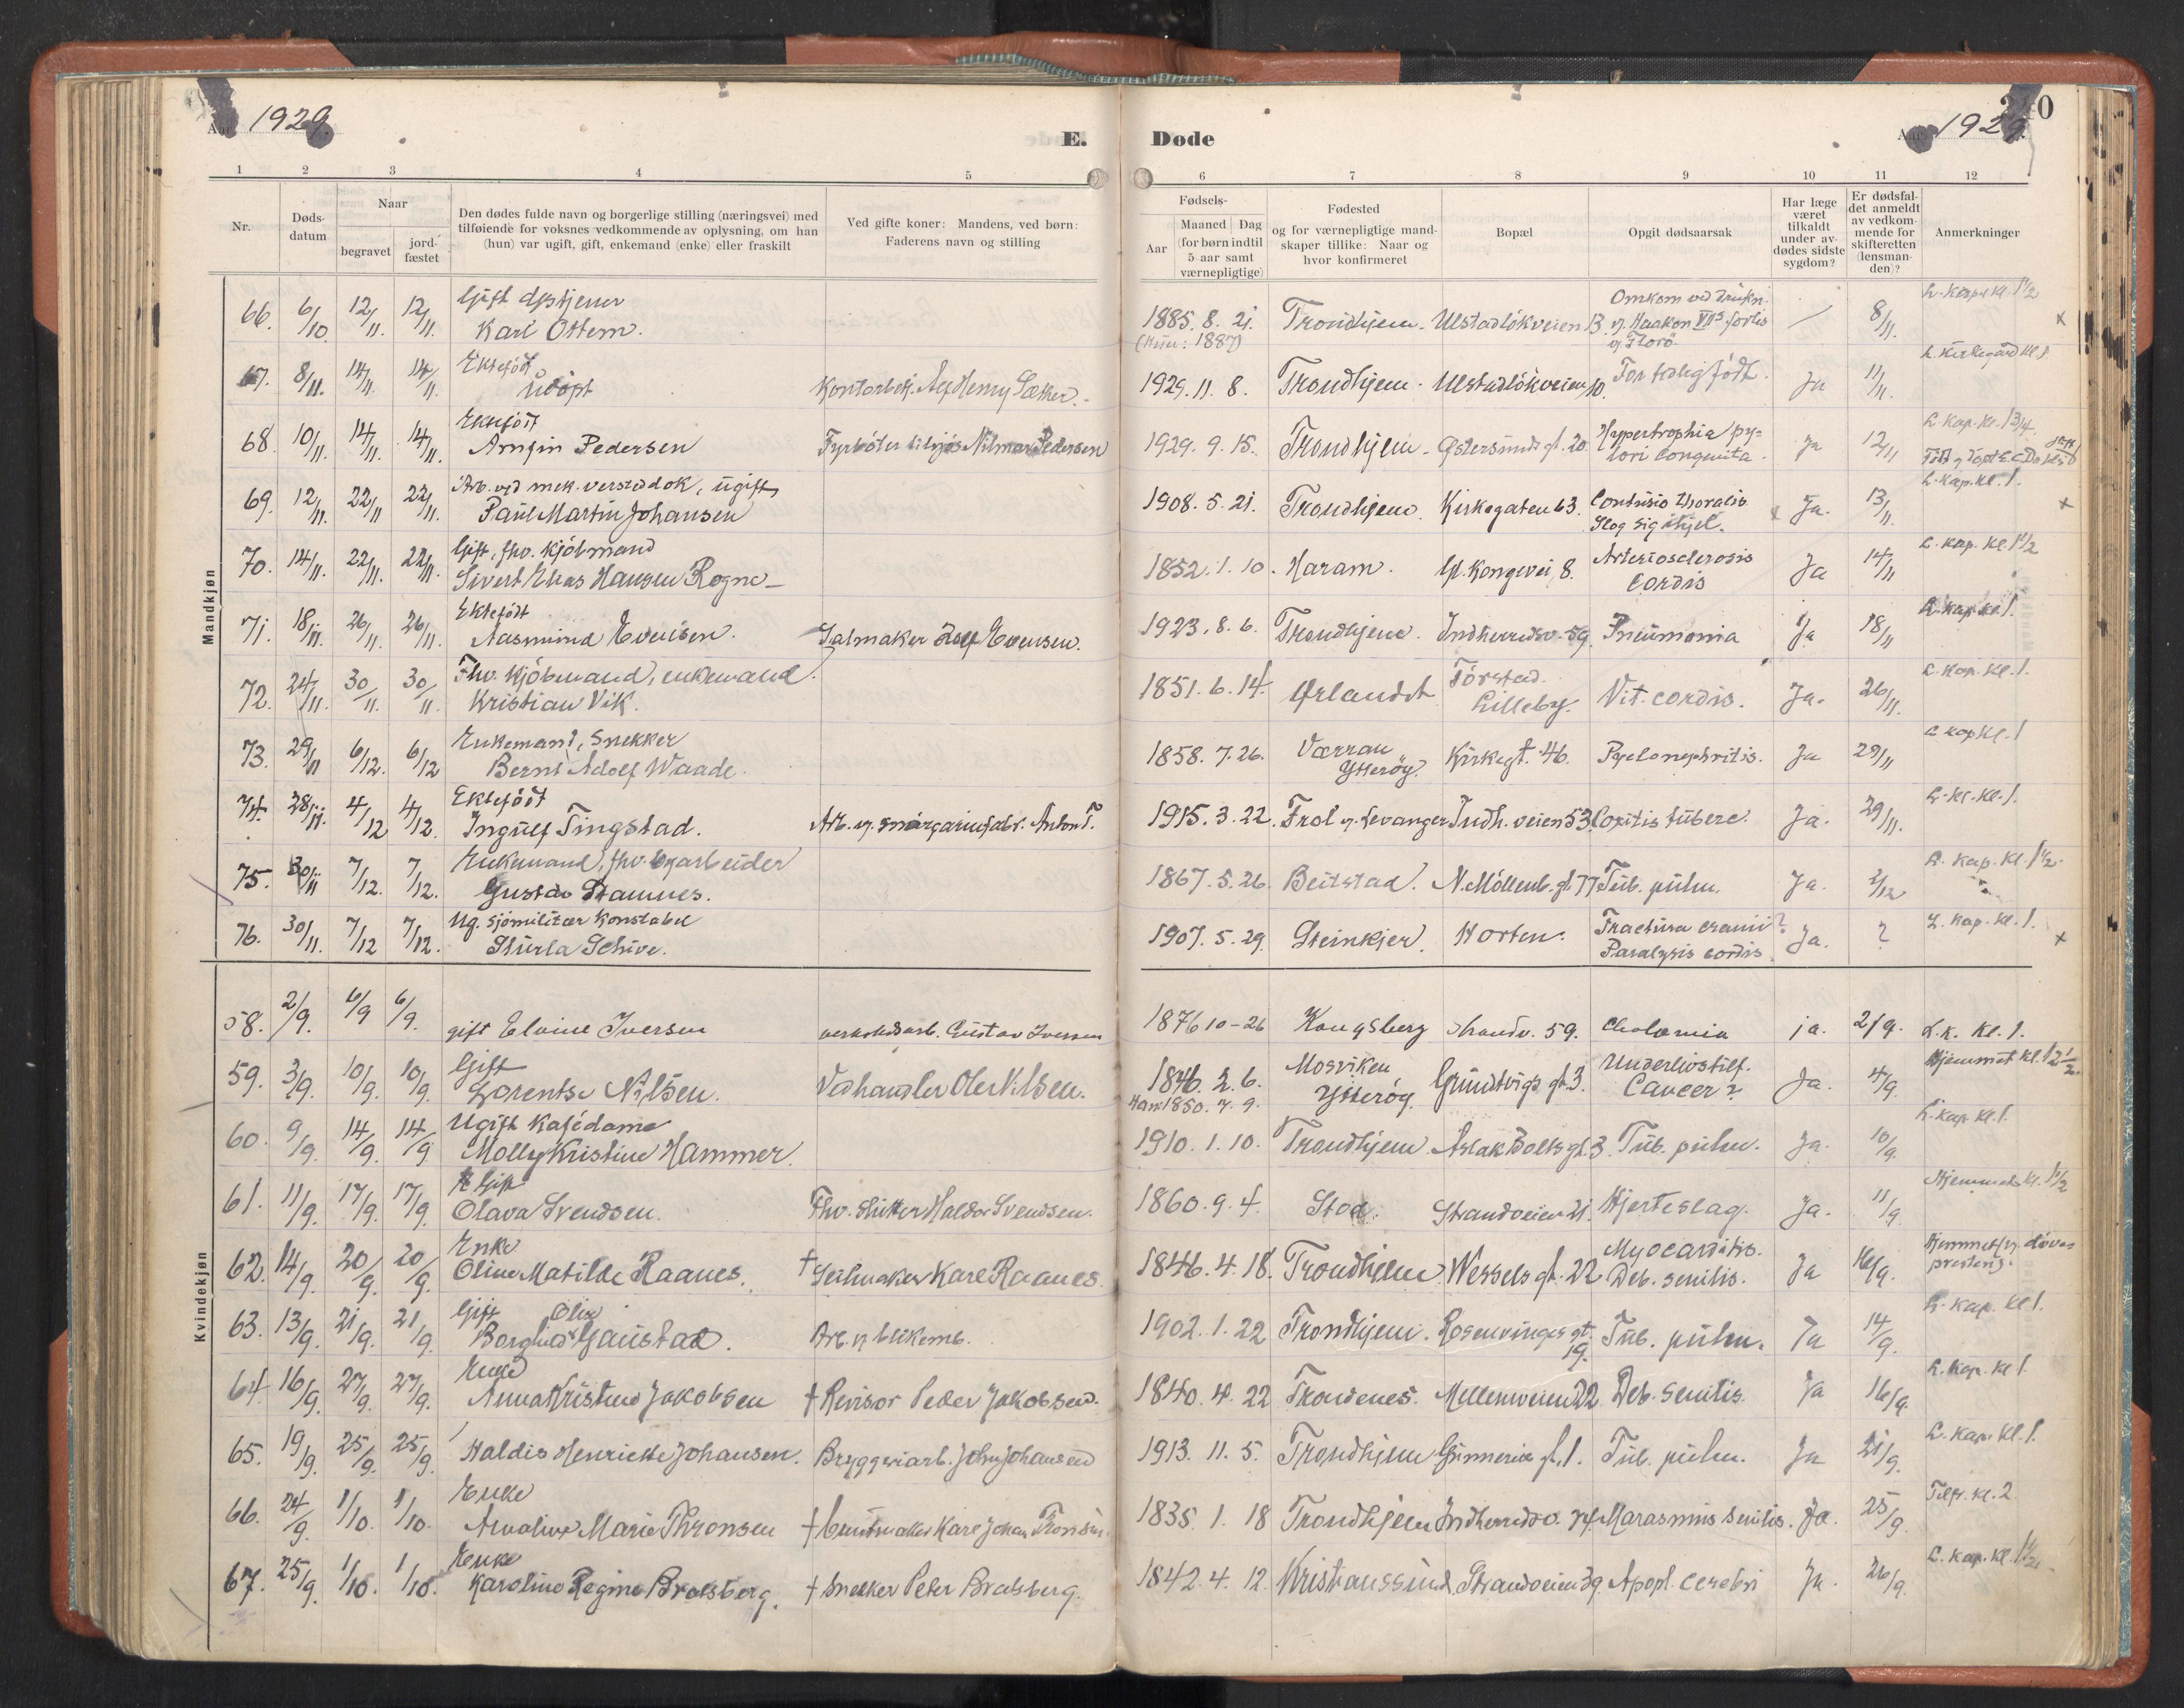 1929.
E.
Døde
1929.
1 2 3 4 5 6 7 8 9 10 11 12
Nr.
Døds-
datum
Naar
begravet
jord-
fæstet
Den dødes fulde navn og borgerlige stilling (næringsvei) med
tilføiende for voksnes vedkommende av oplysning, om han
(hun) var ugift, gift, enkemand (enke) eller fraskilt
Ved gifte koner: Mandens, ved børn:
Faderens navn og stilling
Fødsels-
Aar
Maaned Dag
(for børn indtil
5 aar samt
værnepligtige)
Fødested
og for værnepligtige mand-
skaper tillike: Naar og
hvor konfirmeret
Bopæl
Opgit dødsaarsak
Har læge
været
tilkaldt
under av-
dødes sidste
sygdom?
Er dødsfal-
det anmeldt
av vedkom-
mende for
skifteretten
(lensman-
den)?
Anmerkninger
Mandkjøn
66. 6/10 12/11. 12/11. Gift
Karl Ottem. 1885. 8. 21. Trondhjem. Ulstadløkveien 13 Omkom ved
v. Haakon VII's forlis
v. Florø 8/11.
(Kone: 1887)
67. 8/11. 14/11. 14/11. Ektefødt
Udøpt Kontorbetj. Alf Henry Sæther. 1929. 11. 8. Trondhjem. Ulstadløkveien 10. For tidlig født. Ja 11/11. L. Kirkegård kl. 1.
68. 10/11. 14/11. 14/11. Ektefødt
Arnfin Pedersen Fyrbøter Hilmar Pedersen 1929. 9. 15. Trondhjem. Østersunds gt. 20. Hypertrophia py-
lori Congenita. Ja 12/11 L. Kap. Kl. 1 3/4.
69. 12/11. 22/11 22/11. Arb. ved mek. verksted ugift
Paul Martin Johansen 1908. 5. 21. Trondhjem. Kirkegaten 63. Contusio thoralis
Slog sig ihjel. Ja. 13/11. L. Kap. Kl. 1.
70. 14/11. 22/11. 22/11. Gift, fhv. kjøbmand
Sivert Elias Hansen Rogne 1852. 1. 10. Haram. Gl. Kongevei 8. Arteriosclerosis
Cordis Ja 14/11 L. Kap. Kl. 1 1/2
71. 18/11. 26/11. 26/11. Ektefødt
Aasmund Evensen. Salmaker Evensen. 1923. 8. 6. Trondhjem. Indherredsv. 59. Pneumonia Ja 18/11 L. kap. kl. 1.
72. 24/11. 30/11. 30/11. Fhv. Kjøbmand, enkemand.
Kristian Vik. 1851. 6. 14. Ørlandet
Lilleby. Vit. cordis. Ja. 26/11. L. Kap. Kl. 1.
73. 29/11 6/12. 6/12 Enkemand, Snekker
Bernt Adolf Waade. 1858. 7. 26. Værran
Ytterøy. Kirkegt. 46. Pyelonephritis. Ja 29/11 L kap kl. 1
74. 28/11. 4/12 4/12. Ektefødt
Ingulf Tingstad. Arb. v. margarinfabr. Anton T. 1915. 3. 22. Frol v. Levanger Indh. veien 53. Coxitis tuberc. Ja. 29/11. L. K. Kl. 1.
75. 30/11 7/12. 7/12. Enkemand, fhv. byarbeider
Gustav Stamnes. 1867. 5. 26. Beitstad. N. Møllenb. gt 77 Tub. pulm. Ja. 2/12 L. Kap. Kl. 1 1/2.
76. 30/11. 7/12 7/12. Ug. sjømilitær Konstabel
Sturla Schive. 1907. 5. 29. Steinkjer. Horten. Fractura cranii?
Paralysis cordis. Ja. ? L. Kap. Kl. 1.
Kvindekjøn
58. 2/9. 6/9 6/9. gift Elvine Iversen verkstedsarb. Gustav Iversen 1876 10-26 Kongsberg Strandv. 59. Cholemia ja. 2/9. L. K. Kl. 1.
59. 3/9. 10/9. 10/9. Gift
Lorentse Nilsen. Vedhandler Ole Nilsen. 1846. 2. 6. Mosviken
Ytterøy. Grundtvigs gt 3. Underlivstilf.
Cancer? Ja. 4/9. Hjemmet kl. 12 1/2.
Han: 1850. 7. 9.
60. 9/9. 14/9. 14/9 Ugift Kafédame
Molly Kristine Hammer. 1910. 1. 10. Trondhjem Aslak Bolts gt. 3. Tub. pulm. Ja. 10/9. L. kap. kl. 1.
61. 11/9. 17/9. 17/9. Gift
Olava Svendsen. Fhv. Haldor Svendsen. 1860. 9. 4. Stod. Strandveien 21. Hjerteslag. Ja. 11/9. Hjemmet kl. 1 1/2
62. 14/9. 20/9. 20/9. Enke
Oline Matilde Raanes. † Seilmaker Karl Raanes. 1846. 4. 18. Trondhjem. Wessels gt. 22 Myocarditis.
Deb. senilis. Ja 16/9. Hjemmet v. døves
presten.
63. 13/9. 21/9. 21/9. Gift Olise
Borghild Gaustad. Arb. v. blikemb. 1902. 1. 22 Trondhjem. Rosenvinges gt.
19. Tub. pulm. Ja 14/9. L. Kap. Kl. 1.
64 16/9. 27/9. 27/9. Enke
Anna Kristine Jakobsen † Revisor Peder Jakobsen. 1840. 4. 22 Trondenes. Mellemveien 22 Deb. senilis. Ja 16/9. L. Kap. Kl. 1.
65. 19/9. 25/9. 25/9. Haldis Henriette Johansen. Bryggeriarb. John Johansen 1913. 11. 5. Trondhjem Gunnerus gt. 1. Tub. pulm. Ja 21/9. L. Kap. Kl. 1.
66. 24/9. 1/10. 1/10. Enke
Marie Thronsen † Karl Johan Tronsen. 1835. 1. 18 Trondhjem Indherredsv. Marasmus senilis. Ja. 25/9. kl. 2
67. 25/9. 1/10. 1/10. Enke
Karoline Regine Bratsberg. † Snekker Peter Bratsberg. 1842. 4. 12. Kristianssund. Strandveien 39. Apopl. cerebri Ja. 26/9. L. Kap. Kl. 1 1/2.